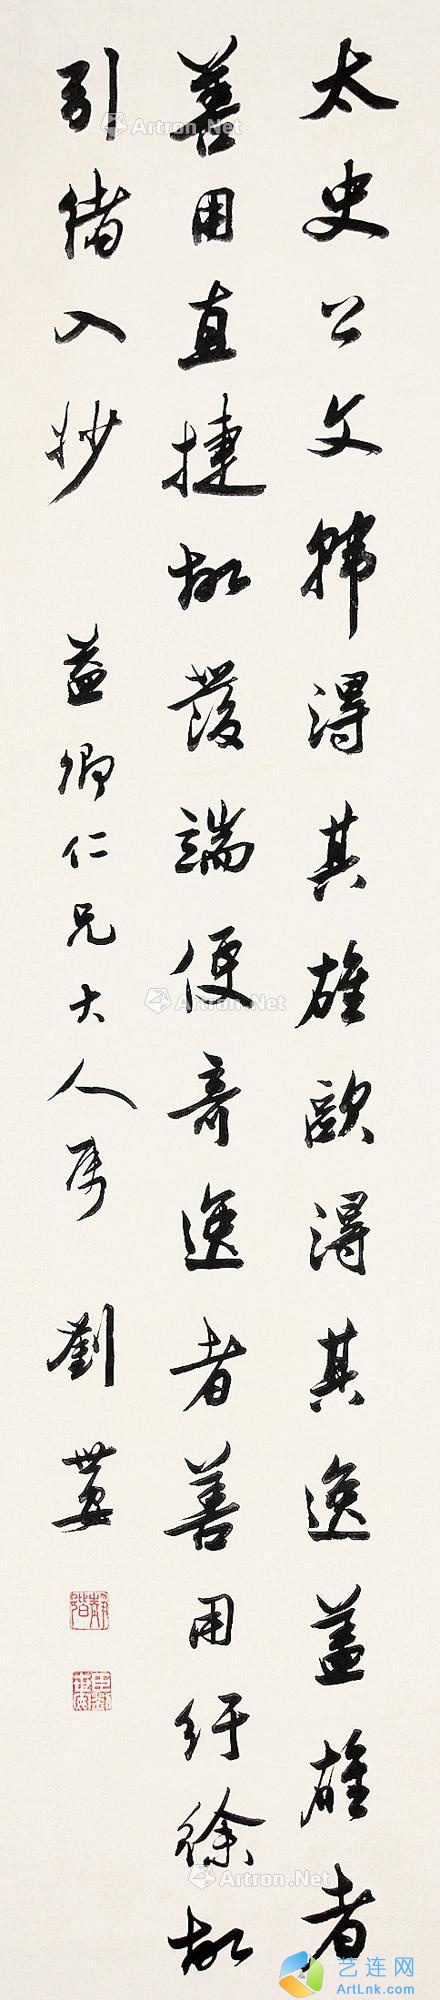 太史公文韩得其雄欧得其逸盖雄者
善用直捷故發端便奇逸者善用紆徐故
引緒入妙
益卿仁兄大人属 劉
Artron.Net
Artron.Net
Artron.Net
艺连网
ArtLnk.com